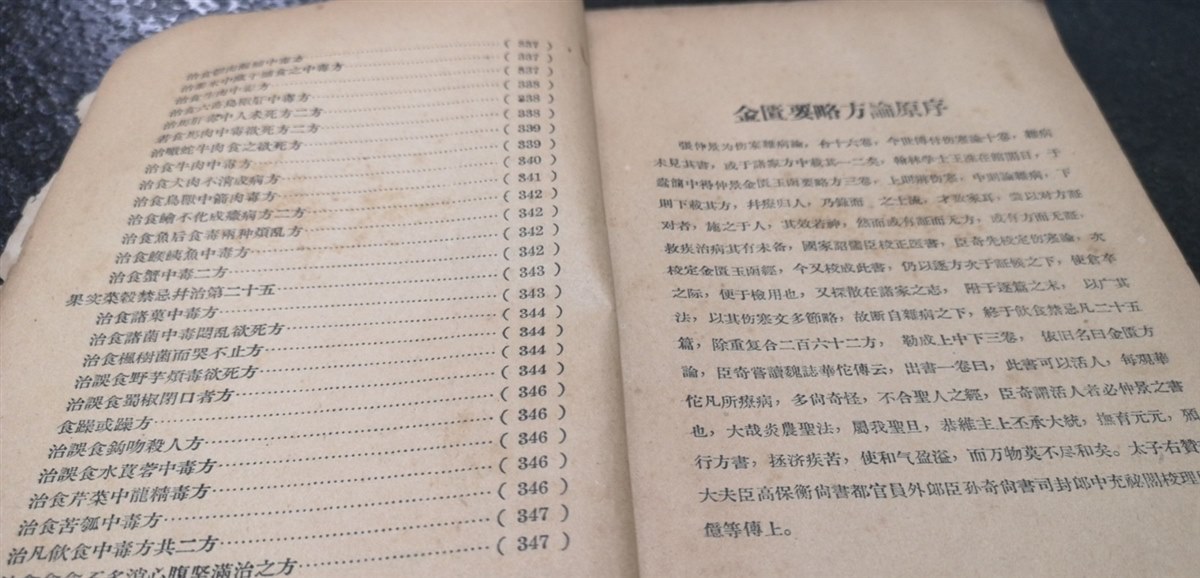 治食郁肉漏脯中毒方……(337)
治黍米中藏干脯食之中毒方……(337)
治食生肉中毒方……(337)
治食六畜鳥獸肝中毒方……(338)
治死肝毒中人未死方二方……(338)
者食死肉中毒欲死方二方……(338)
治噉蛇牛肉食之欲死方……(339)
治食牛肉中毒方……(339)
治食犬肉不消成病方……(340)
治食鳥獸中箭肉毒方……(341)
治食鱠不化成癥病方二方……(342)
治食魚后食毒两种煩乱方……(342)
治食鯸鮧魚中毒方……(342)
治食蟹中毒二方……(343)
果实菜穀禁忌幷治第二十五……(343)
治食諸菓中毒方……(344)
治食諸菌中毒悶乱欲死方……(344)
治食楓樹菌而哭不止方……(344)
治誤食野芋煩毒欲死方……(344)
治誤食蜀椒閉口者方……(346)
食躁或躁方……(346)
治誤食鈎吻殺人方……(346)
治誤食水莨菪中毒方……(346)
治食芹菜中龍精毒方……(346)
治食苦瓠中毒方……(347)
治凡飲食中毒方共二方……(347)
不多消心腹堅滿治之方……
金匱要略方論原序
張仲景为伤寒雜病論,合十六卷,今世傳伤寒論十卷,雜病
未見其書,或于諸家方中載其一二矣,翰林學士王洙在館閣日,于
蠹簡中得仲景金匱玉函要略方三卷,上則辨伤寒,中則論雜病,下
則下載其方,幷療归人,乃錄而 之士流,才数家耳,尝以对方証
对者,施之于人,其效若神,然而或有証而无方,或有方而无証,
救疾治病其有未备,國家詔儒臣校正医書,臣奇先校定伤寒論,次
校定金匱玉函經,今又校成此書,仍以逐方次于証候之下,使倉卒
之际,便于檢用也,又採散在諸家之志,附于逐篇之末,以广其
法,以其伤寒文多節略,故断自雜病之下,終于飲食禁忌凡二十五
篇,除重复合二百六十二方,勒成上中下三卷,依旧名曰金匱方
論,臣奇嘗讀魏誌華佗傳云,出書一卷曰,此書可以活人,每覌華
佗凡所療病,多尙奇怪,不合聖人之經,臣奇謂活人者必仲景之書
也,大哉炎農聖法,屬我聖旦,恭維主上丕承大統,撫育元元,
行方書,拯济疾苦,使和气盈溢,而万物莫不尽和矣。太子右贊
大夫臣高保衡尙書都官員外郎臣孙奇尙書司封郎中充祕閣校理
億等傳上。